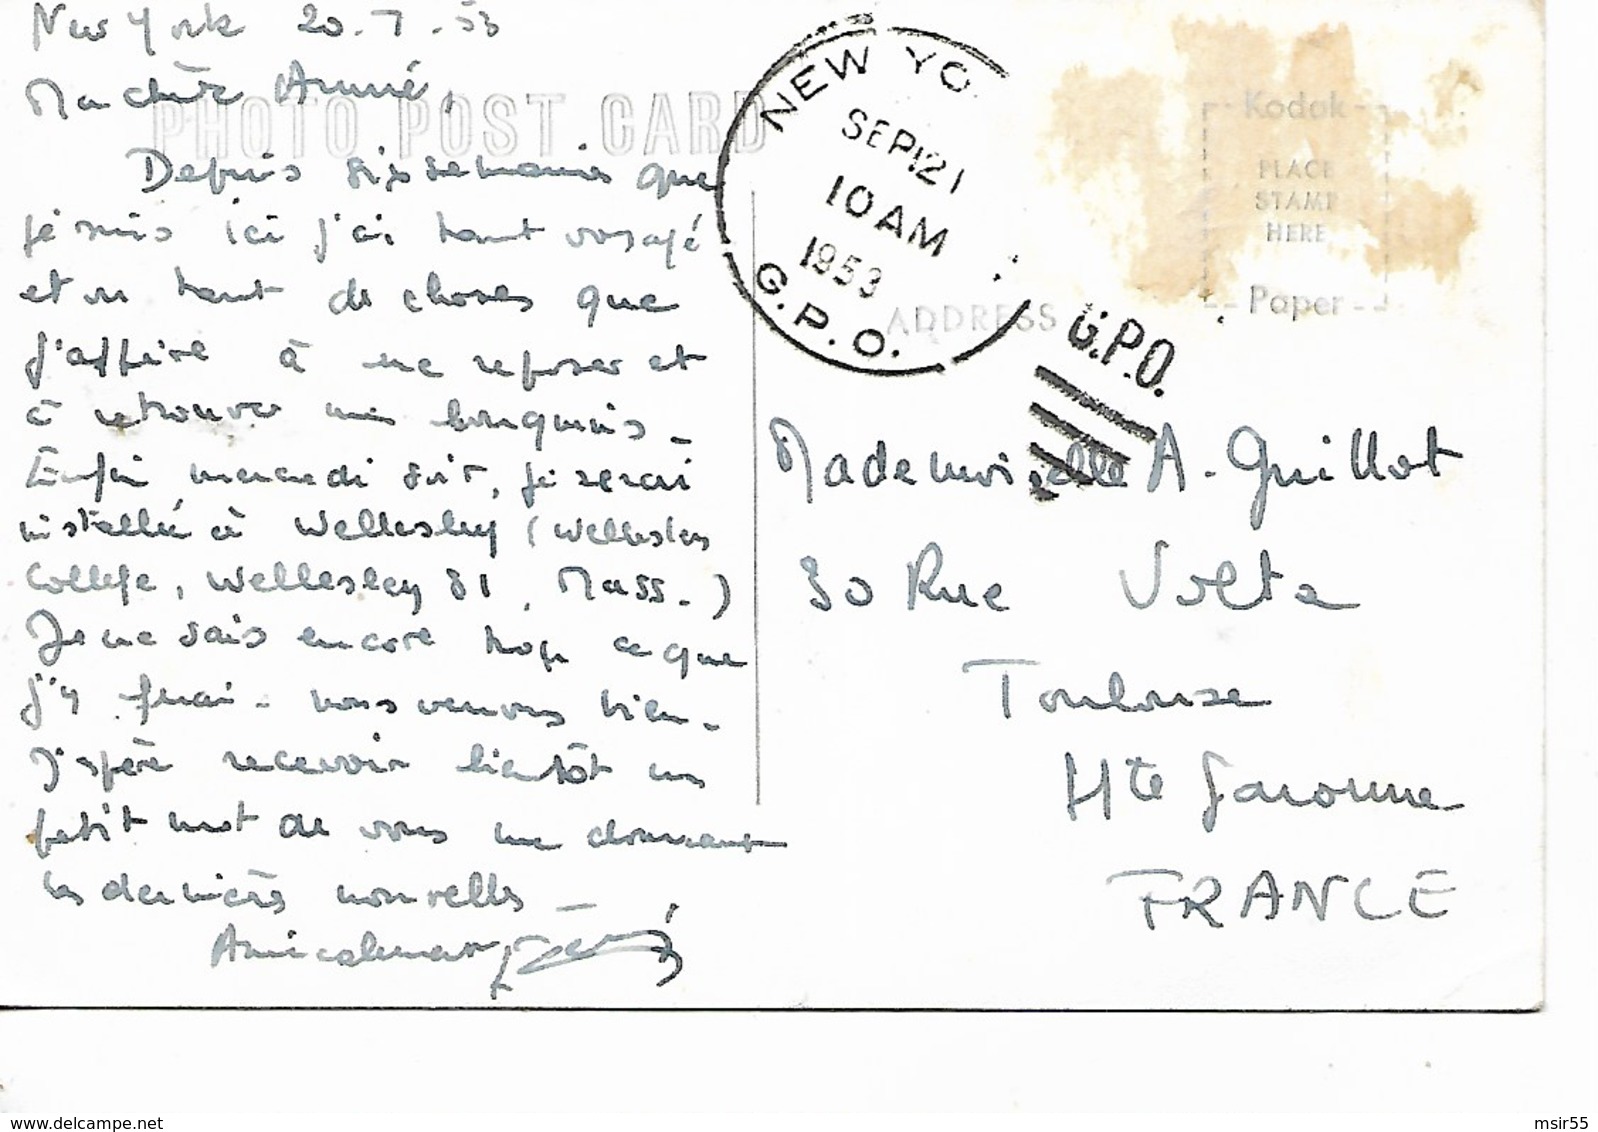 New York 20-7-53
Ma chère Annie,
PHOTO POST CARD
Depuis six semaines que
je suis ici j'ai tant voyagé
et vu tant de choses que
j'aspire à me reposer et
à retrouver mes bouquins_
Enfin mercredi soir, je serai
installé à Wellesley (Wellesley
College, Wellesley 81, Mass.)
Je ne sais encore trop ce que
j'y ferai - nous verrons bien -
J'espère recevoir bientôt un
petit mot de vous me donnant
les dernières nouvelles_
Amicalement
NEW YO
SEP 21
10 AM
1953
G.P.O.
G.P.O.
Kodak
PLACE
STAMP
HERE
Paper
ADDRESS
Mademoiselle A. Guillot
30 Rue Volta
Toulouse
Hte Garonne
FRANCE
www.delcampe.net
msir55